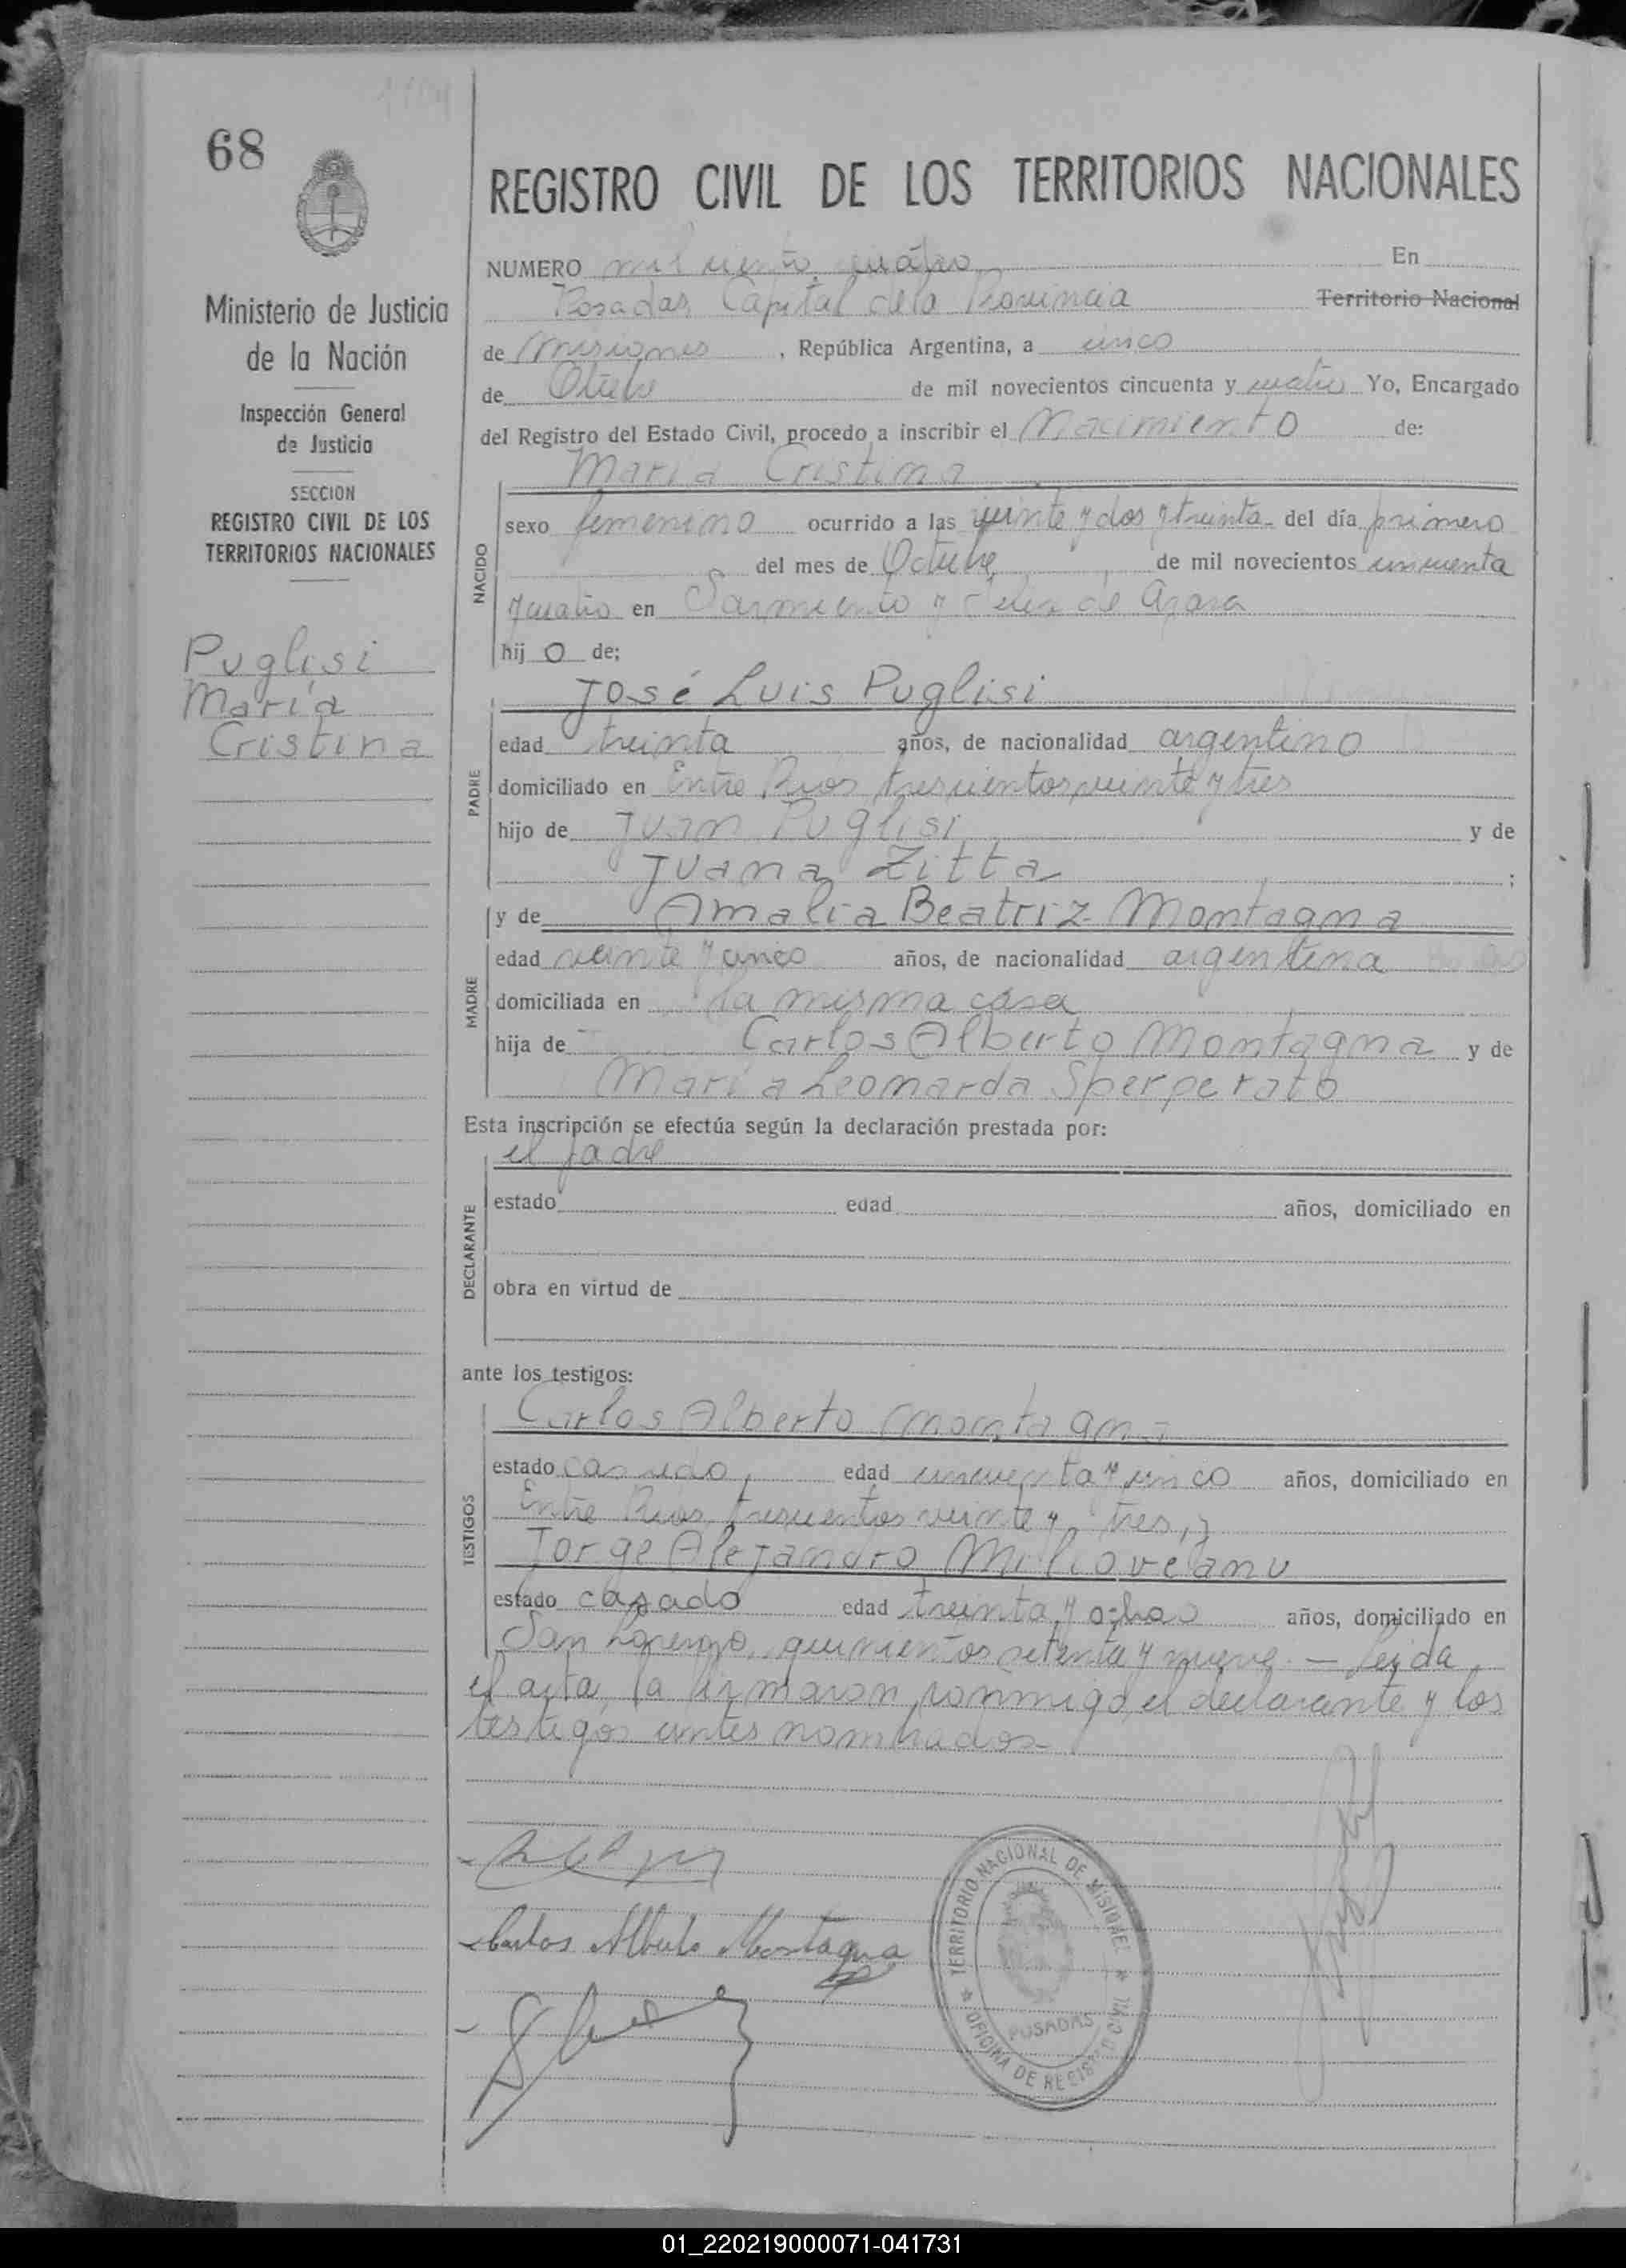 68
REGISTRO CIVIL DE LOS TERRITORIOS NACIONALES
Ministerio de Justicia
de la Nación
Inspección General
de Justicia
SECCION
REGISTRO CIVIL DE LOS
TERRITORIOS NACIONALES
Puglisi
María
Cristina
NUMERO mil ciento cuatro En
Posadas Capital de la Provincia Territorio Nacional
de Misiones, República Argentina, a cinco
de Octubre de mil novecientos cincuenta y cuatro Yo, Encargado
del Registro del Estado Civil, procedo a inscribir el Nacimiento de:
María Cristina
NACIDO
sexo femenino ocurrido a las veinte y dos y treinta del día primero
del mes de Octubre de mil novecientos cincuenta
y cuatro en Sarmiento y Felix de Azara
hij o de;
José Luis Puglisi
PADRE
edad treinta años, de nacionalidad argentino
domiciliado en Entre Rios trescientos veinte y tres
hijo de Juan Puglisi y de
Juana Zitta ;
y de Amalia Beatriz Montagna
MADRE
edad veinte y cinco años, de nacionalidad argentina
domiciliada en la misma casa
hija de Carlos Alberto Montagna y de
María Leonarda Sperperato
Esta inscripción se efectúa según la declaración prestada por:
el padre
DECLARANTE
estado edad años, domiciliado en
obra en virtud de
ante los testigos:
Carlos Alberto Montagna
TESTIGOS
estado casado, edad cincuenta y cinco años, domiciliado en
Entre Rios trescientos veinte y tres, y
Jorge Alejandro
estado casado edad treinta y ocho años, domiciliado en
San Lorenzo, quinientos setenta y nueve. — Leida
el acta, la firmaron conmigo, el declarante y los
testigos antes nombrados-
Carlos Alberto Montagna
TERRITORIO NACIONAL DE MISIONES
POSADAS
OFICINA DE REGISTRO CIVIL
01_220219000071-041731